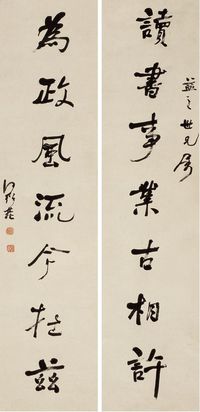 讀書事業古相許
益之世兄屬
為政風流今在茲